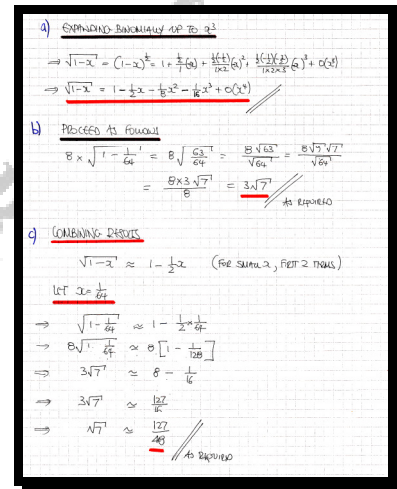 a) EXPANDING BINOMIALLY UP TO x³
⇒ √(1-x) = (1-x)^½ = 1 + ½/1 (x) + ½(-½)/(1×2) (x)² + ½(-½)(-3/2)/(1×2×3) (x)³ + O(x⁴)
⇒ √(1-x) = 1 - ½x - ⅛x² - 1/16 x³ + O(x⁴)
b) PROCEED AS FOLLOWS
8 × √(1 - 1/64) = 8√(63/64) = 8√63/√64 = 8√9√7/√64
= 8×3√7/8 = 3√7
AS REQUIRED
c) COMBINING RESULTS
√(1-x) ≈ 1 - ½x (FOR SMALL x, FIRST 2 TERMS)
LET x = 1/64
⇒ √(1 - 1/64) ≈ 1 - ½ × 1/64
⇒ 8√(1 - 1/64) ≈ 8[1 - 1/128]
⇒ 3√7 ≈ 8 - 1/16
⇒ 3√7 ≈ 127/16
⇒ √7 ≈ 127/48
AS REQUIRED